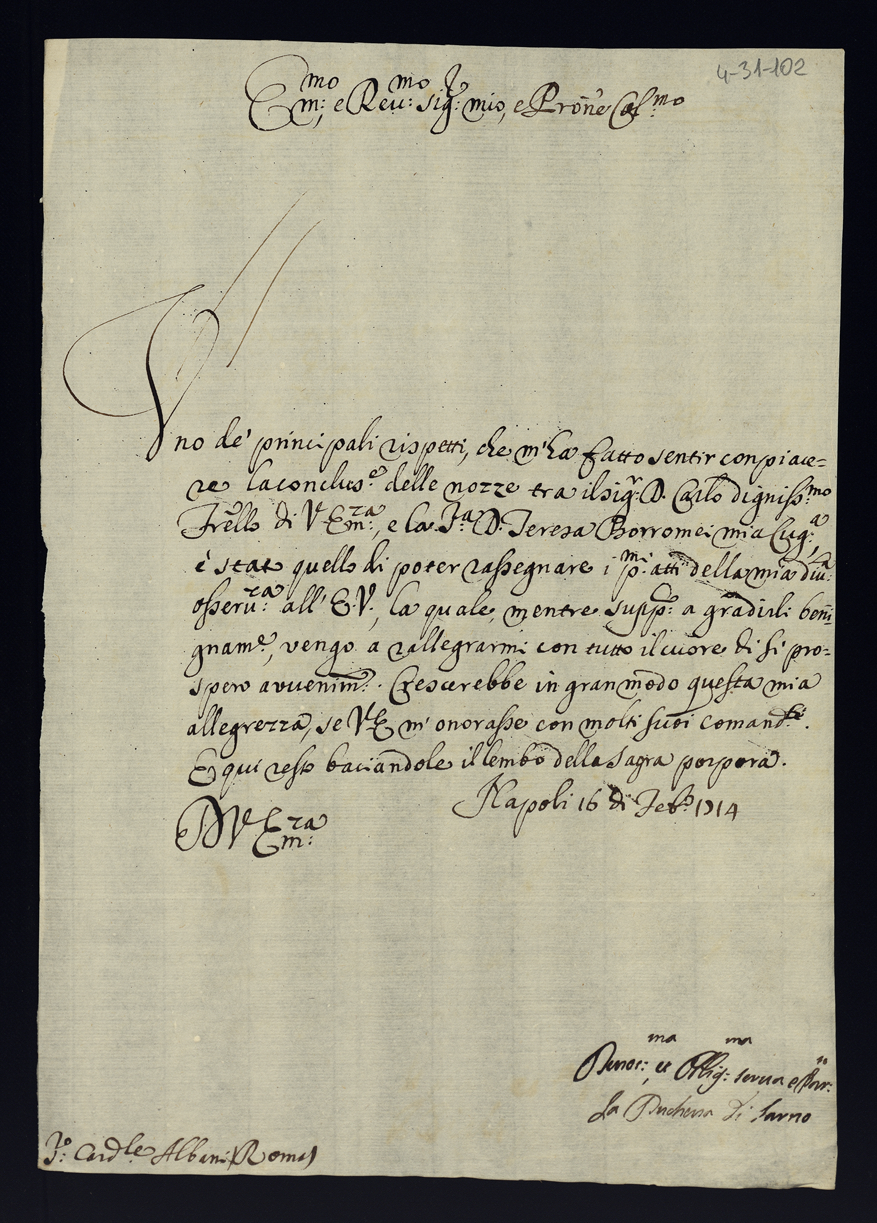 4-31-102
Em:mo, e Reu:mo Sig:r mio, e Pron̄e Col:mo
Uno de' principali rispetti, che m'ha fatto sentir con piace=
re la conclus:e delle nozze tra il Sig:r D. Carlo digniss:mo
Frello di V. Em:za, e la S:ra D. Teresa Borromei mia Cug:a,
è stato quello di poter rassegnare i p:mi atti della mia diu:ma
osseru:za all' E. V., la quale, mentre supp:o a gradirli beni=
gnam:e, vengo a rallegrarmi con tutto il cuore di sì pro=
spero avvenim:o. Crescerebbe in gran modo questa mia
allegrezza, se V. E. m' onorasse con molti suoi comand:ti.
E qui resto baciandole il lembo della Sagra porpora.
Napoli 16 di Feb:o 1714
D V. Em:za
Deuot:ma, et Oblig:ma serua e
La Duchessa di Sarno
S:r Card:le Albani (Roma)